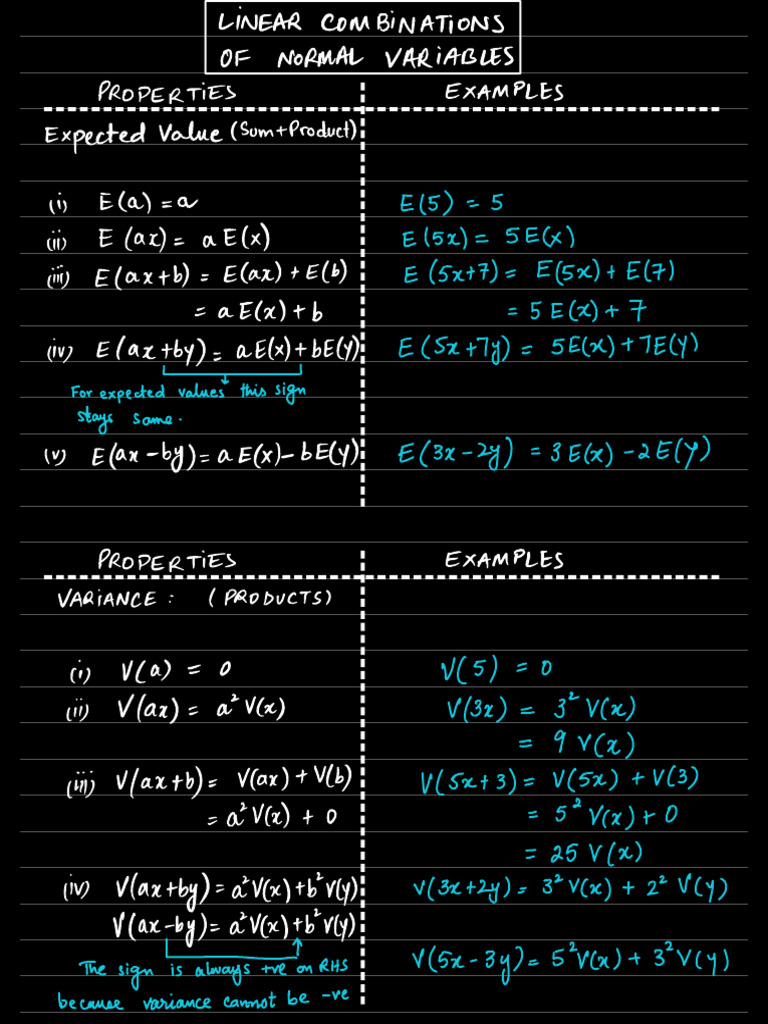 LINEAR COMBINATIONS
OF NORMAL VARIABLES
PROPERTIES EXAMPLES
Expected Value (Sum+Product)
(i) E(a) = a E(5) = 5
(ii) E(ax) = a E(x) E(5x) = 5E(x)
(iii) E(ax+b) = E(ax) + E(b) E(5x+7) = E(5x) + E(7)
= a E(x) + b = 5 E(x) + 7
(iv) E(ax+by) = aE(x)+bE(y) E(5x+7y) = 5E(x)+7E(y)
For expected values this sign
stays same.
(v) E(ax-by) = a E(x) - bE(y) E(3x-2y) = 3 E(x) - 2 E(y)
PROPERTIES EXAMPLES
VARIANCE: (PRODUCTS)
(i) V(a) = 0 V(5) = 0
(ii) V(ax) = a² V(x) V(3x) = 3² V(x)
= 9 V(x)
(iii) V(ax+b) = V(ax) + V(b) V(5x+3) = V(5x) + V(3)
= a² V(x) + 0 = 5² V(x) + 0
= 25 V(x)
(iv) V(ax+by) = a²V(x)+b²V(y) V(3x+2y) = 3² V(x) + 2² V(y)
V(ax-by) = a²V(x)+b²V(y)
V(5x-3y) = 5²V(x) + 3²V(y)
The sign is always +ve on RHS
because variance cannot be -ve